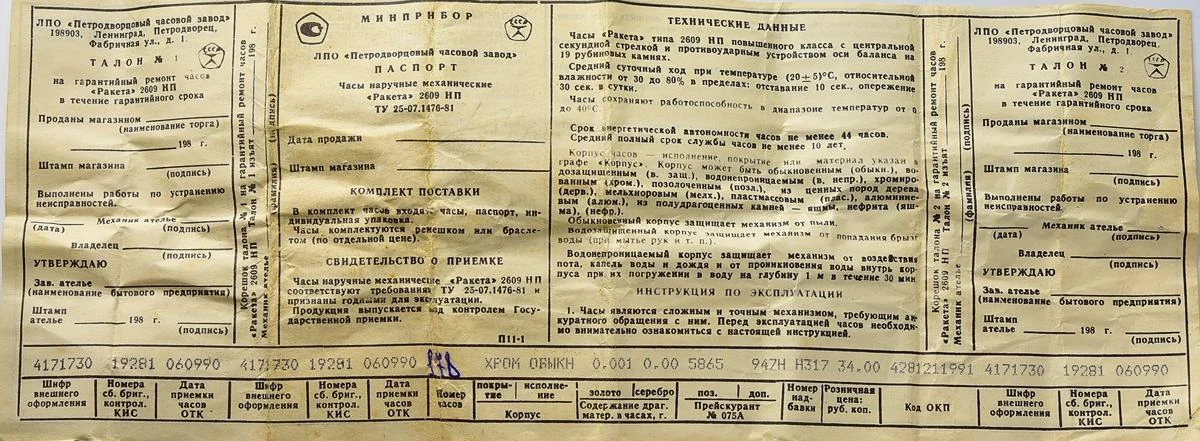 ЛПО «Петродворцовый часовой завод»
198903, Ленинград, Петродворец,
Фабричная ул., д. 1.
ТАЛОН № 1
на гарантийный ремонт часов
«Ракета» 2609 НП
в течение гарантийного срока
Проданы магазином
(наименование торга)
198 г.
Штамп магазина
(подпись)
Выполнены работы по устранению
неисправностей.
Механик ателье
(дата) (подпись)
Владелец
(подпись)
УТВЕРЖДАЮ
Зав. ателье
(наименование бытового предприятия)
Штамп
ателье 198 г.
(подпись)
Корешок талона № 1 на гарантийный ремонт часов
«Ракета» 2609 НП Талон № 1 изъят 198 г.
Механик ателье
(фамилия) (подпись)
МИНПРИБОР
ЛПО «Петродворцовый часовой завод»
ПАСПОРТ
Часы наручные механические
«Ракета» 2609 НП
ТУ 25-07.1476-81
Дата продажи
Штамп магазина
КОМПЛЕКТ ПОСТАВКИ
В комплект часов входят: часы, паспорт, ин-
дивидуальная упаковка.
Часы комплектуются ремешком или брасле-
том (по отдельной цене).
СВИДЕТЕЛЬСТВО О ПРИЕМКЕ
Часы наручные механические «Ракета» 2609 НП
соответствуют требованиям ТУ 25-07.1476-81 и
признаны годными для эксплуатации.
Продукция выпускается под контролем Госу-
дарственной приемки.
П11-1
ТЕХНИЧЕСКИЕ ДАННЫЕ
Часы «Ракета» типа 2609 НП повышенного класса с центральной
секундной стрелкой и противоударным устройством оси баланса на
19 рубиновых камнях.
Средний суточный ход при температуре (20±5)°С, относительной
влажности от 30 до 80% в пределах: отставание 10 сек., опережение
30 сек. в сутки.
Часы сохраняют работоспособность в диапазоне температур от 0
до 40°С.
Срок энергетической автономности часов не менее 44 часов.
Средний полный срок службы часов не менее 10 лет.
Корпус часов — исполнение, покрытие или материал указан в
графе «Корпус». Корпус может быть обыкновенный (обыкн.), во-
дозащищенным (в. защ.), водонепроницаемым (в. непр.), хромиро-
ванным (хром.), позолоченным (позл.), из ценных пород дерева
(дерв.), мельхиоровым (мелх.), пластмассовым (плас.), алюминие-
вым (алюм.), из полудрагоценных камней — яшмы, нефрита (яш-
ма), (нефр.).
Обыкновенный корпус защищает механизм от пыли.
Водозащищенный корпус защищает механизм от попадания брызг
воды (при мытье рук и т. п.).
Водонепроницаемый корпус защищает механизм от воздействия
пота, капель воды и дождя и от проникновения воды внутрь кор-
пуса при их погружении в воду на глубину 1 м в течение 30 мин.
ИНСТРУКЦИЯ ПО ЭКСПЛУАТАЦИИ
1. Часы являются сложным и точным механизмом, требующим ак-
куратного обращения с ним. Перед эксплуатацией часов необходи-
мо внимательно ознакомиться с настоящей инструкцией.
Корешок талона № 2 на гарантийный ремонт часов
«Ракета» 2609 НП Талон № 2 изъят 198 г.
Механик ателье
(фамилия) (подпись)
ЛПО «Петродворцовый часовой завод»
198903, Ленинград, Петродворец,
Фабричная ул., д. 1.
ТАЛОН № 2
на гарантийный ремонт часов
«Ракета» 2609 НП
в течение гарантийного срока
Проданы магазином
(наименование торга)
198 г.
Штамп магазина
(подпись)
Выполнены работы по устранению
неисправностей.
Механик ателье
(дата) (подпись)
Владелец
(подпись)
УТВЕРЖДАЮ
Зав. ателье
(наименование бытового предприятия)
Штамп
ателье 198 г.
(подпись)
4171730 19281 060990 4171730 19281 060990 178 ХРОМ ОБЫКН 0.001 0.00 5865 947Н Н317 34.00 4281211991 4171730 19281 060990
Шифр внешнего оформления
Номера сб. бриг., контрол. КИС
Дата приемки часов ОТК
Шифр внешнего оформления
Номера сб. бриг., контрол. КИС
Дата приемки часов ОТК
Номер часов
покры-тие исполне-ние
Корпус
золото серебро
Содержание драг. матер. в часах, г.
поз. доп.
Прейскурант № 075А
Номер над-бавки
Розничная цена: руб. коп.
Код ОКП
Шифр внешнего оформления
Номера сб. бриг., контрол. КИС
Дата приемки часов ОТК